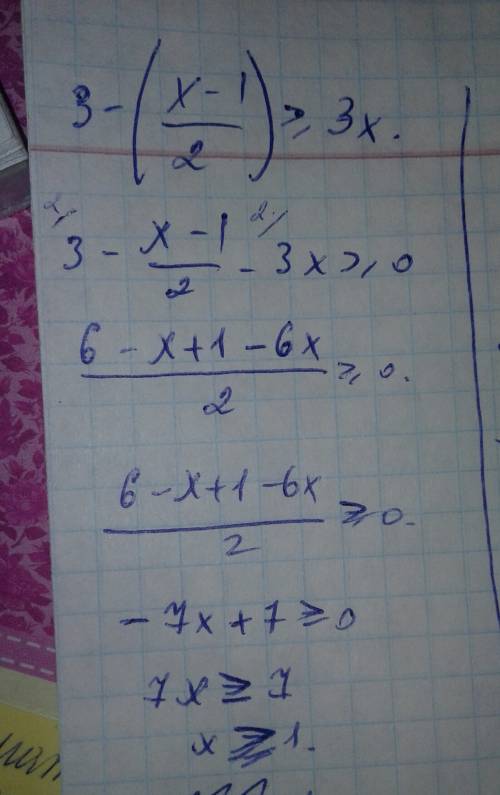 3 - (x - 1 / 2) ≥ 3x.
2/ 3 - x - 1 / 2 2/ - 3x ≥ 0
6 - x + 1 - 6x / 2 ≥ 0.
6 - x + 1 - 6x / 2 ≥ 0.
- 7x + 7 ≥ 0
7x ≥ 7
x ≥ 1.